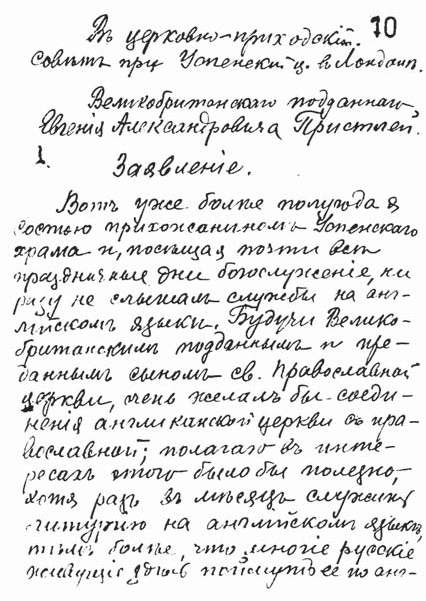 70
Въ церковно-приходскій
совѣтъ при Успенской ц. въ Лондонѣ.
Великобританскаго подданнаго
Евгенія Александровича Пристлей.
1.
Заявленіе.
Вотъ уже болѣе полугода я
состою прихожаниномъ Успенскаго
храма и, посѣщая почти всѣ
праздничные дни богослуженіе, ни
разу не слышалъ службы на анг-
лійскомъ языкѣ. Будучи Велико-
британскимъ подданнымъ и пре-
даннымъ сыномъ св. Православной
церкви, очень желалъ бы соеди-
ненія англиканской церкви съ пра-
вославной; полагаю въ инте-
ресахъ этого было бы полезно,
хотя разъ въ мѣсяцъ служить
литургію на англійскомъ языкѣ,
тѣмъ болѣе, что многіе русскіе
живущіе здѣсь поймутъ ее по анг-